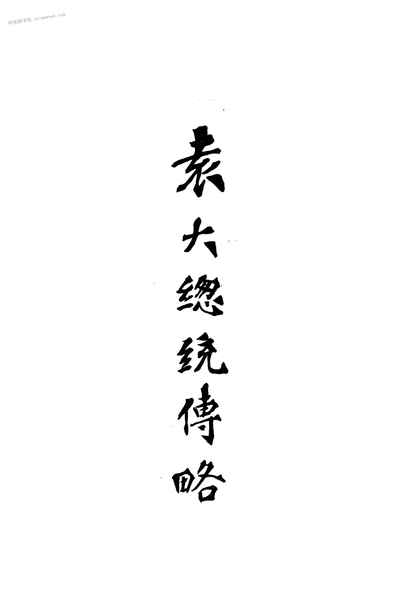 袁大總統傳略